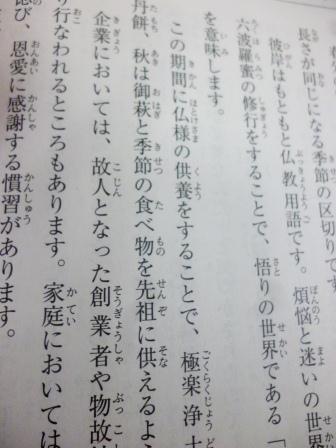 長さが同じになる季節の区切りで
彼岸はもともと仏教用語です。煩悩と迷いの世界
六波羅蜜の修行をすることで、悟りの世界である「
を意味します。
この期間に仏様の供養をすることで、極楽浄土
丹餅、秋は御萩と季節の食べ物を先祖に供えるよう
企業においては、故人となった創業者や物故
り行なわれるところもあります。家庭においては
び、恩愛に感謝する慣習があります。